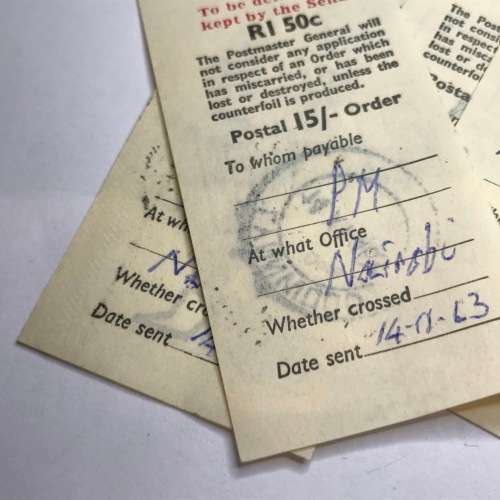 To be de
kept by the Sen
RI 50c
The Postmaster General will
not consider any application
in respect of an Order which
has miscarried, or has been
lost or destroyed, unless the
counterfoil is produced.
Postal 15/- Order
To whom payable
PM
At what Office
Nairobi
Whether crossed
Date sent 14-11-63
At wh
Na
Whether cro
Date sent 14
The Post
not consi
in respec
has misca
lost or d
counterfoi
Posta